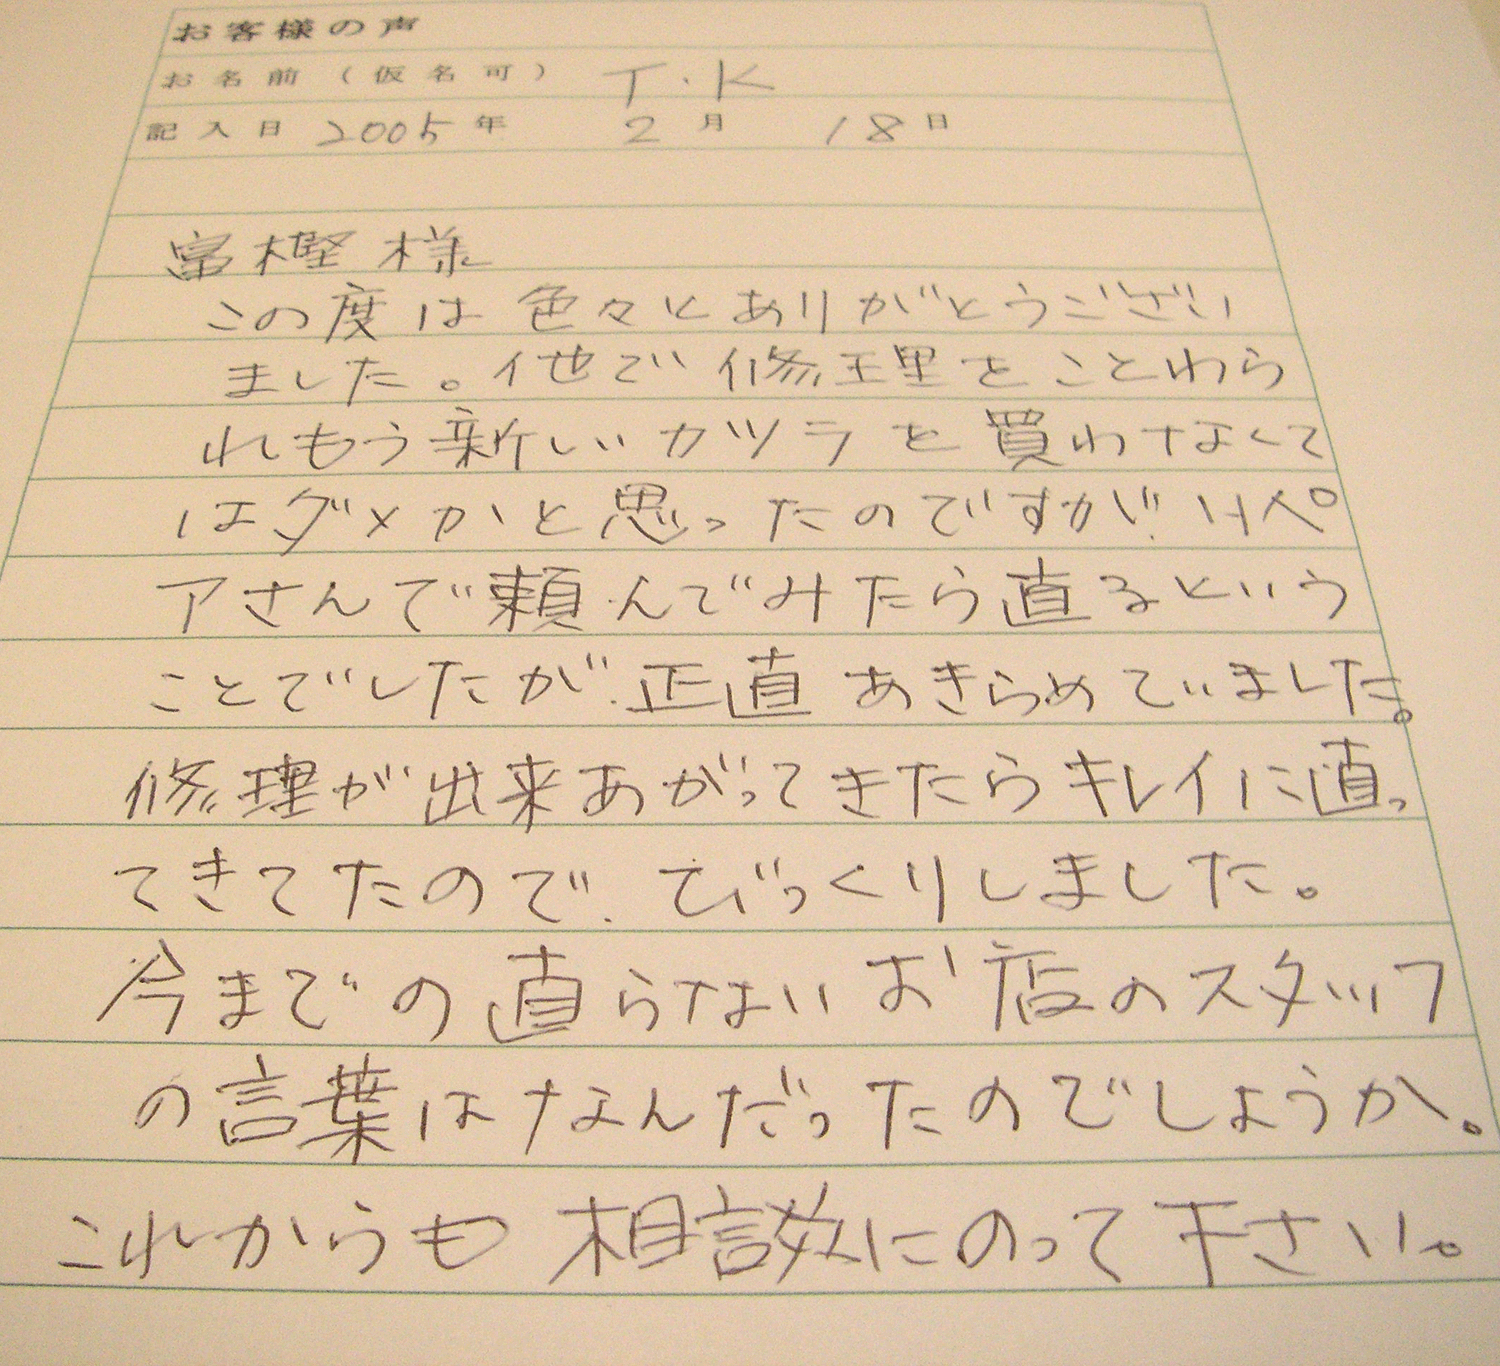 お客様の声
お名前（仮名可） T・K
記入日 2005年 2月 18日
富樫様
この度は色々とありがとうござい
ました。他で修理をことわら
れもう新しいカツラを買わなくて
はダメかと思ったのですが、リペ
アさんで頼んでみたら直るという
ことでしたが、正直あきらめていました。
修理が出来あがってきたらキレイに直っ
てきてたので、びっくりしました。
今までの直らないお店のスタッフ
の言葉はなんだったのでしょうか。
これからも相談にのって下さい。